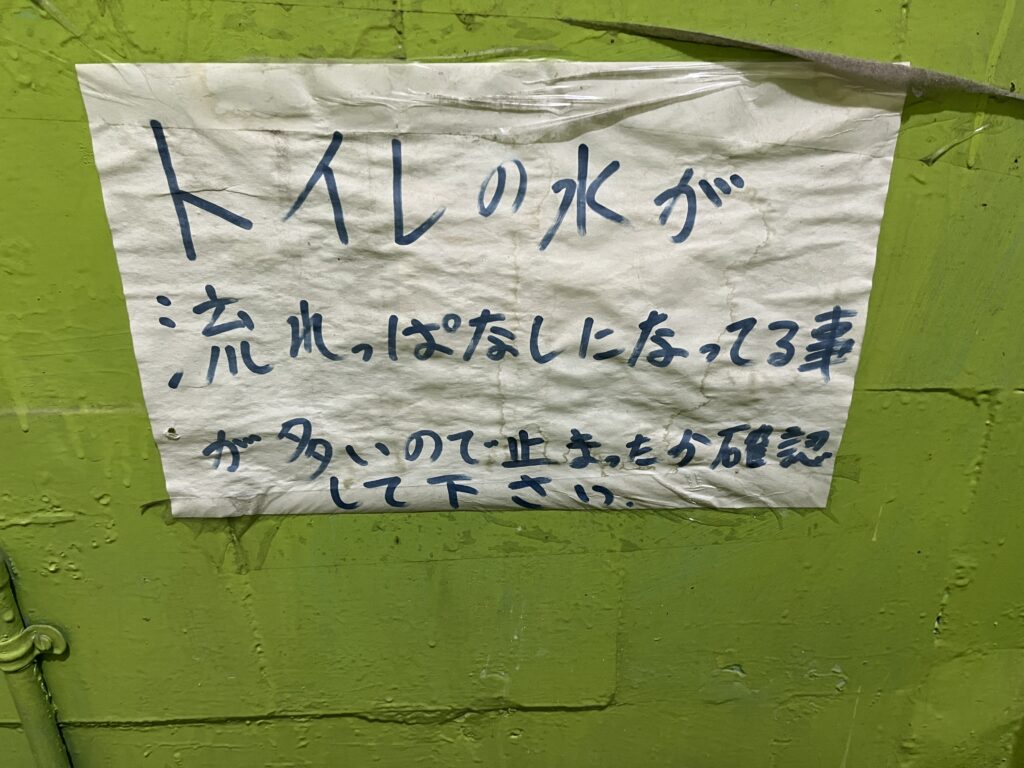 トイレの水が
流れっぱなしになってる事
が多いので止まったか確認
して下さい.